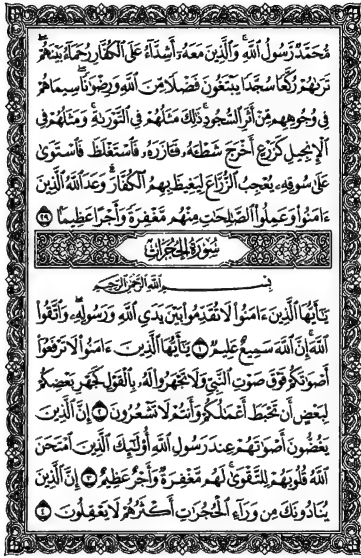 مُّحَمَّدٌ رَّسُولُ اللَّهِ وَالَّذِينَ مَعَهُ أَشِدَّاءُ عَلَى الْكُفَّارِ رُحَمَاءُ بَيْنَهُمْ
تَرَىٰهُمْ رُكَّعًا سُجَّدًا يَبْتَغُونَ فَضْلًا مِّنَ اللَّهِ وَرِضْوَٰنًا سِيمَاهُمْ
فِى وُجُوهِهِم مِّنْ أَثَرِ السُّجُودِ ذَٰلِكَ مَثَلُهُمْ فِى التَّوْرَىٰةِ وَمَثَلُهُمْ فِى
الْإِنجِيلِ كَزَرْعٍ أَخْرَجَ شَطْـَٔهُ فَـَٔازَرَهُ فَاسْتَغْلَظَ فَاسْتَوَىٰ
عَلَىٰ سُوقِهِ يُعْجِبُ الزُّرَّاعَ لِيَغِيظَ بِهِمُ الْكُفَّارَ وَعَدَ اللَّهُ الَّذِينَ
ءَامَنُوا وَعَمِلُوا الصَّٰلِحَٰتِ مِنْهُم مَّغْفِرَةً وَأَجْرًا عَظِيمًا ٢٩
سُورَةُ الْحُجُرَاتِ
بِسْمِ اللَّهِ الرَّحْمَٰنِ الرَّحِيمِ
يَٰٓأَيُّهَا الَّذِينَ ءَامَنُوا لَا تُقَدِّمُوا بَيْنَ يَدَىِ اللَّهِ وَرَسُولِهِ وَاتَّقُوا
اللَّهَ إِنَّ اللَّهَ سَمِيعٌ عَلِيمٌ ١ يَٰٓأَيُّهَا الَّذِينَ ءَامَنُوا لَا تَرْفَعُوا
أَصْوَٰتَكُمْ فَوْقَ صَوْتِ النَّبِىِّ وَلَا تَجْهَرُوا لَهُ بِالْقَوْلِ كَجَهْرِ بَعْضِكُمْ
لِبَعْضٍ أَن تَحْبَطَ أَعْمَٰلُكُمْ وَأَنتُمْ لَا تَشْعُرُونَ ٢ إِنَّ الَّذِينَ
يَغُضُّونَ أَصْوَٰتَهُمْ عِندَ رَسُولِ اللَّهِ أُولَٰٓئِكَ الَّذِينَ امْتَحَنَ
اللَّهُ قُلُوبَهُمْ لِلتَّقْوَىٰ لَهُم مَّغْفِرَةٌ وَأَجْرٌ عَظِيمٌ ٣ إِنَّ الَّذِينَ
يُنَادُونَكَ مِن وَرَآءِ الْحُجُرَٰتِ أَكْثَرُهُمْ لَا يَعْقِلُونَ ٤